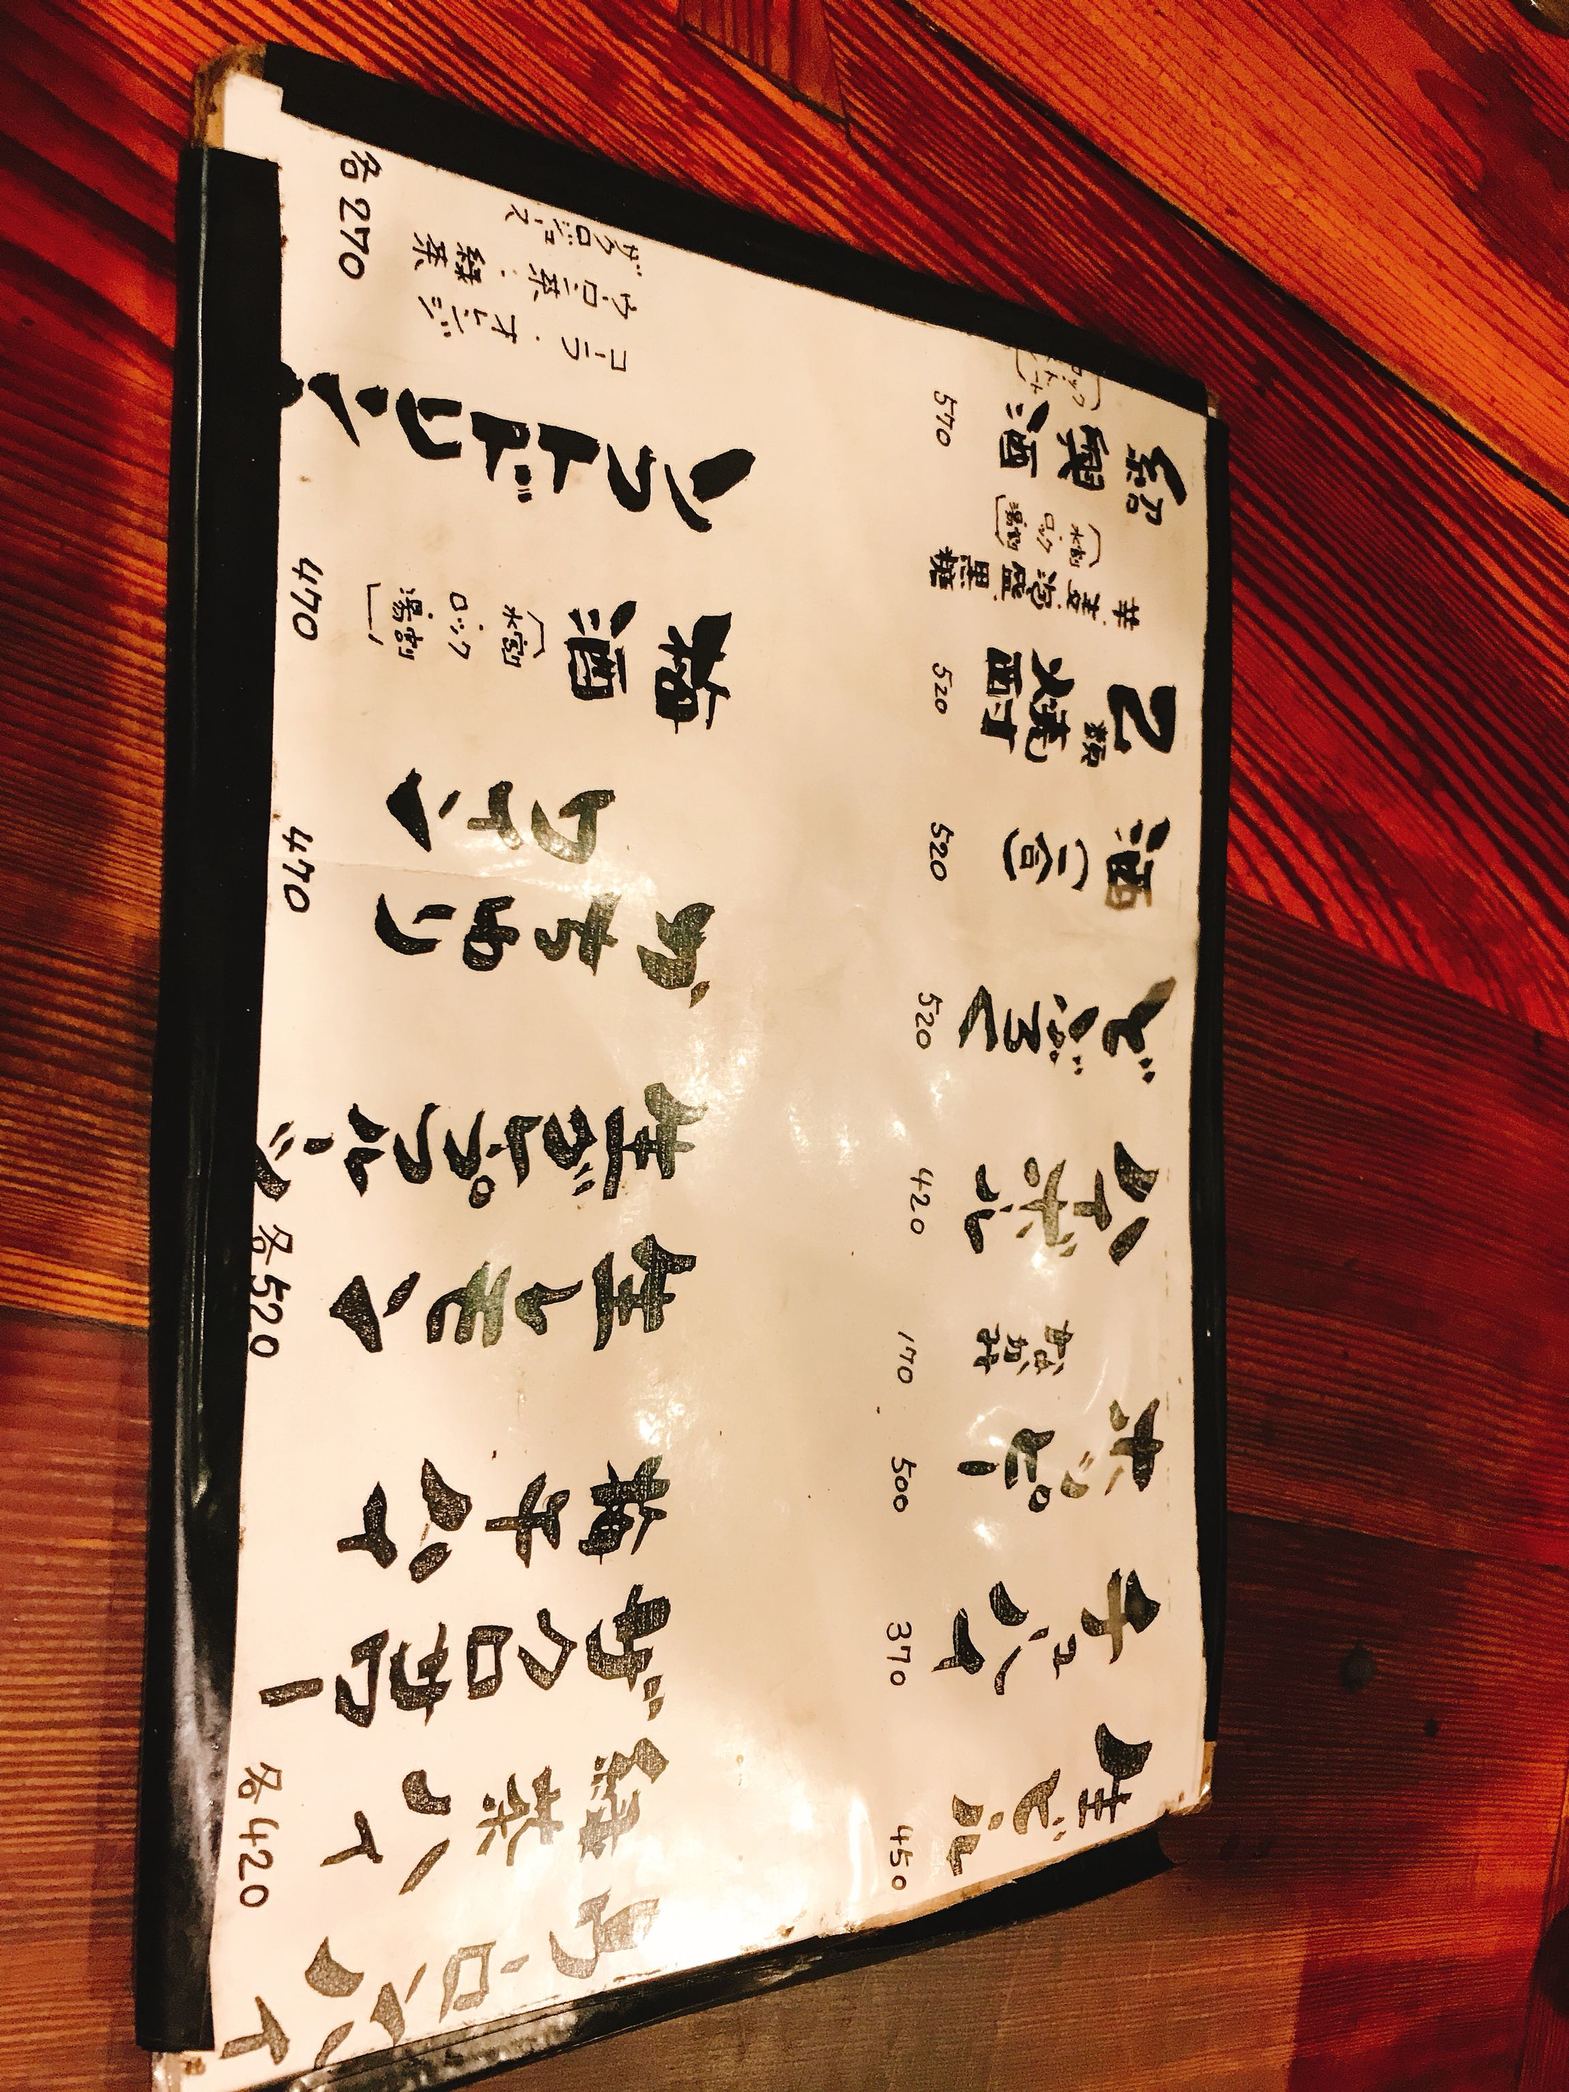 生ビール 450
チューハイ 370
ホッピー 500
なかみ 170
ハイボール 420
どぶろく 520
酒(一合) 520
乙類焼酎 520
芋 麦 泡盛 黒糖
水割 ロック 湯割
紹興酒 570
ロック
ウーロンハイ
緑茶ハイ
ザクロサワー
梅干ハイ
各420
生レモン
生グレープフルーツ
各520
ワイン 470
梅酒 470
水割 ロック 湯割
ソフトドリンク
コーラ・オレンジ
ウーロン茶・緑茶
ザクロジュース
各270